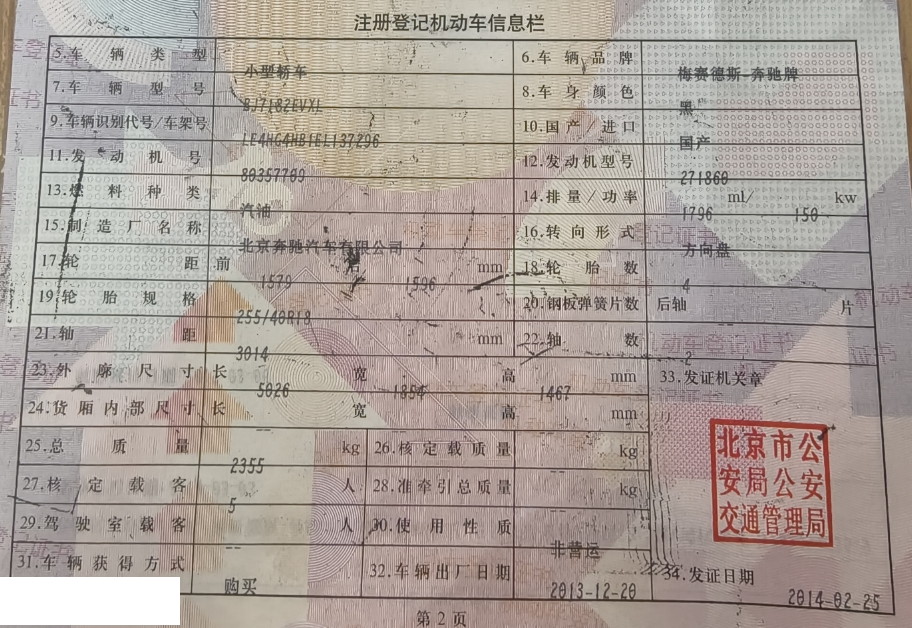 注册登记机动车信息栏
5.车辆类型 小型轿车 6.车辆品牌 梅赛德斯-奔驰牌
7.车辆型号 BJ7182EVXL 8.车身颜色 黑
9.车辆识别代号/车架号 LE4HG4HB1EL137296 10.国产/进口 国产
11.发动机号 80357709 12.发动机型号 271860
13.燃料种类 汽油 14.排量/功率 1796 ml/ 150 kw
15.制造厂名称 北京奔驰汽车有限公司 16.转向形式 方向盘
17.轮距 前 1579 后 1596 mm 18.轮胎数 4
19.轮胎规格 255/40R18 20.钢板弹簧片数 后轴 片
21.轴距 3014 mm 22.轴数 2
23.外廓尺寸 长 5026 宽 1854 高 1467 mm 33.发证机关章
24.货厢内部尺寸 长 宽 高 mm
25.总质量 2355 kg 26.核定载质量 -- kg
27.核定载客 5 人 28.准牵引总质量 -- kg
29.驾驶室载客 -- 人 30.使用性质 非营运
31.车辆获得方式 购买 32.车辆出厂日期 2013-12-20 34.发证日期 2014-02-25
北京市公
安局公安
交通管理局
第2页